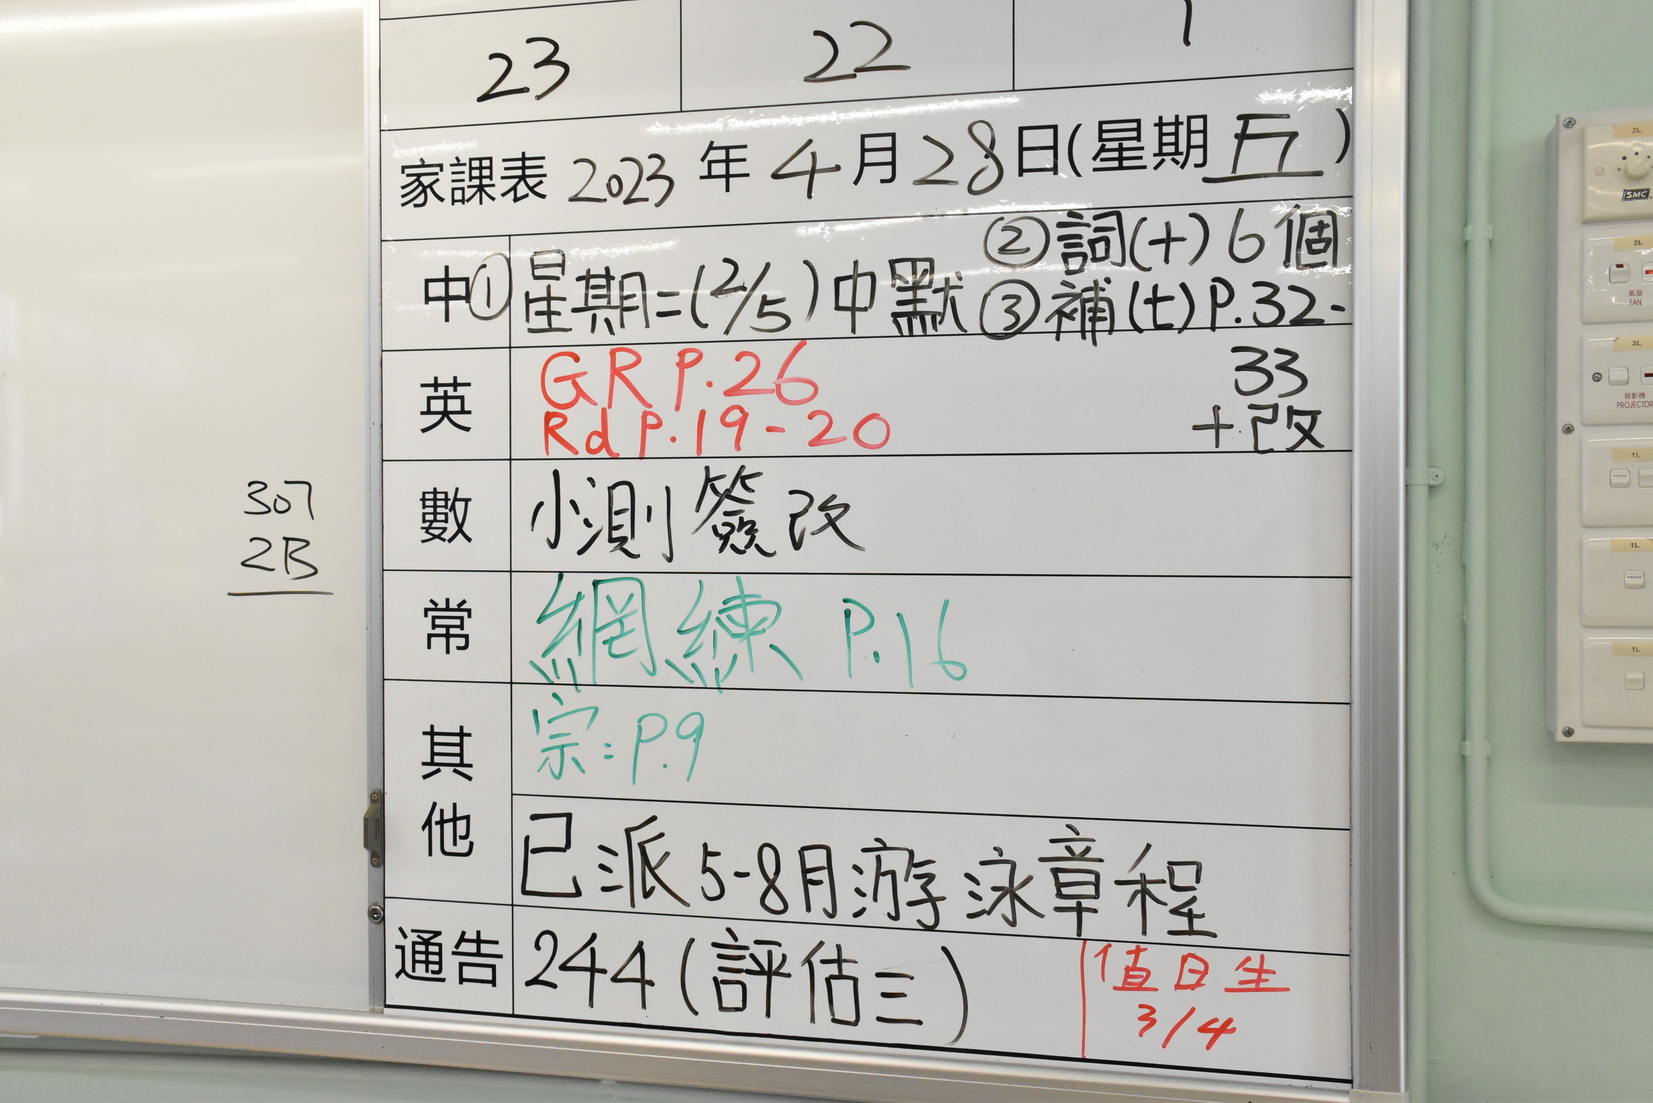 23 22 1
家課表 2023 年 4 月 28 日(星期 五 )
中 ① 星期二(2/5)中默 ② 詞(十) 6 個
③ 補(七) P.32-
33
+改
英 GR P.26
Rd P.19-20
數 小測簽改
常 網練 P.16
其他 宗:P.9
已派 5-8月游泳章程
通告 244 (評估三)
值日生
3/4
307
2B
2L
SMC
2L
風扇
FAN
3L
投影機
PROJECTOR
1L
1L
1L